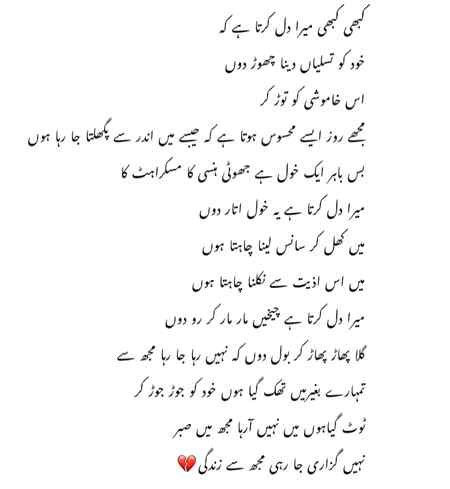 کبھی کبھی میرا دل کرتا ہے کہ
خود کو تسلیاں دینا چھوڑ دوں
اس خاموشی کو توڑ کر
مجھے روز ایسے محسوس ہوتا ہے کہ جیسے میں اندر سے پگھلتا جا رہا ہوں
بس باہر ایک خول ہے جھوٹی ہنسی کا مسکراہٹ کا
میرا دل کرتا ہے یہ خول اتار دوں
میں کھل کر سانس لینا چاہتا ہوں
میں اس اذیت سے نکلنا چاہتا ہوں
میرا دل کرتا ہے چیخیں مار مار کر رو دوں
گلا پھاڑ پھاڑ کر بول دوں کہ نہیں رہا جا رہا مجھ سے
تمہارے بغیرمیں تھک گیا ہوں خود کو جوڑ جوڑ کر
ٹوٹ گیاہوں میں نہیں آرہا مجھ میں صبر
نہیں گزاری جا رہی مجھ سے زندگی 💔